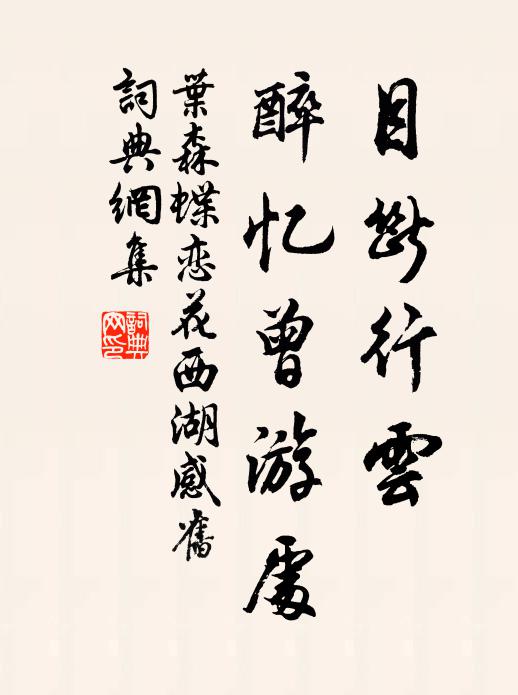 目断行雲
醉忆曾游處
葉森蝶恋花西湖感舊
詞典網集
詞典
网印